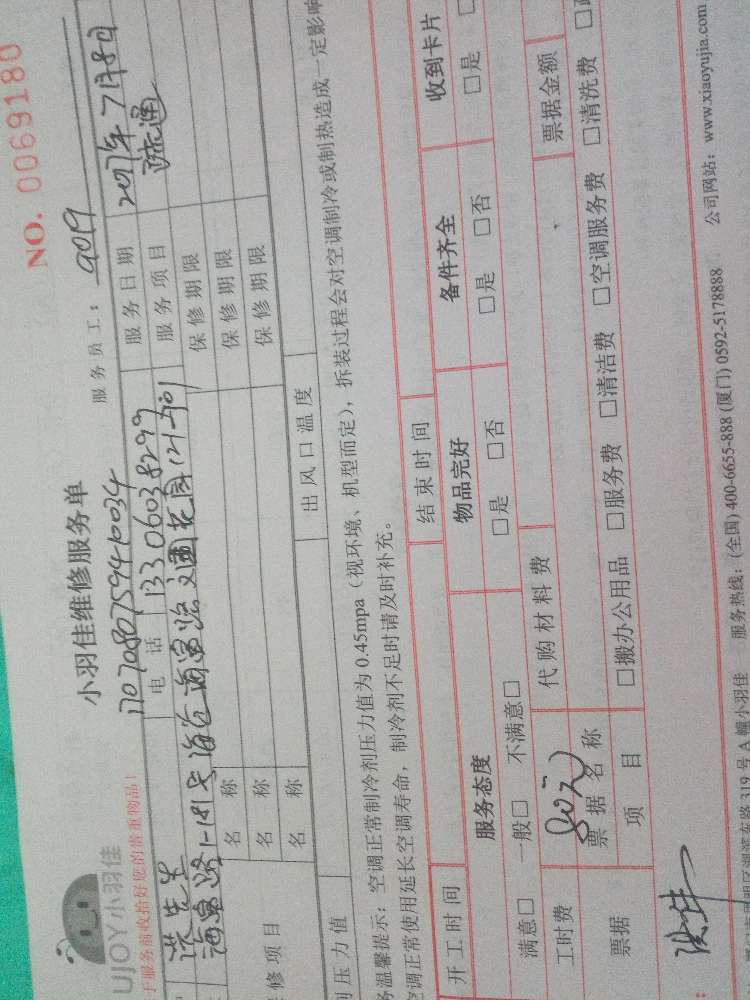 NO. 0069180
小羽佳维修服务单
UJOY小羽佳
服务员工: 9019
于服务前收拾好您的贵重物品!
1707080759410034
洪先生 电话 13306038299 服务日期 2017年7月8日
服务项目 疏通
海富路1-18号海台海富路交通花园121-901
名称 保修期限
修项目 名称 保修期限
名称 保修期限
压力值 出风口温度
务温馨提示:空调正常制冷剂压力值为0.45mpa(视环境、机型而定),拆装过程会对空调制冷或制热造成一定影响
空调正常使用延长空调寿命,制冷剂不足时请及时补充。
开工时间 结束时间
服务态度 物品完好 备件齐全 收到卡片
满意□ 一般□ 不满意□ □是 □否 □是 □否 □是
工时费 80元 代购材料费 票据金额
票据 票据名称
项目 □搬办公用品 □服务费 □清洁费 □空调服务费 □清洗费
319号A幢小羽佳 服务热线:(全国) 400-6655-888 (厦门) 0592-5178888 公司网站: www.xiaoyujia.com